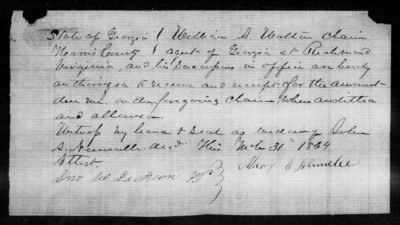 State of Georgia } William S. Walton claim
Harris County } agent of Georgia at Richmond
Virginia, and his Successors in office are hereby
authorized to receive and receipt for the amount
due me, on the foregoing claim when audited
and allowed.
Witness my hand & Seal as widow of John
S. dec'd This 31st 1864
Attest
Jno W. Jackson